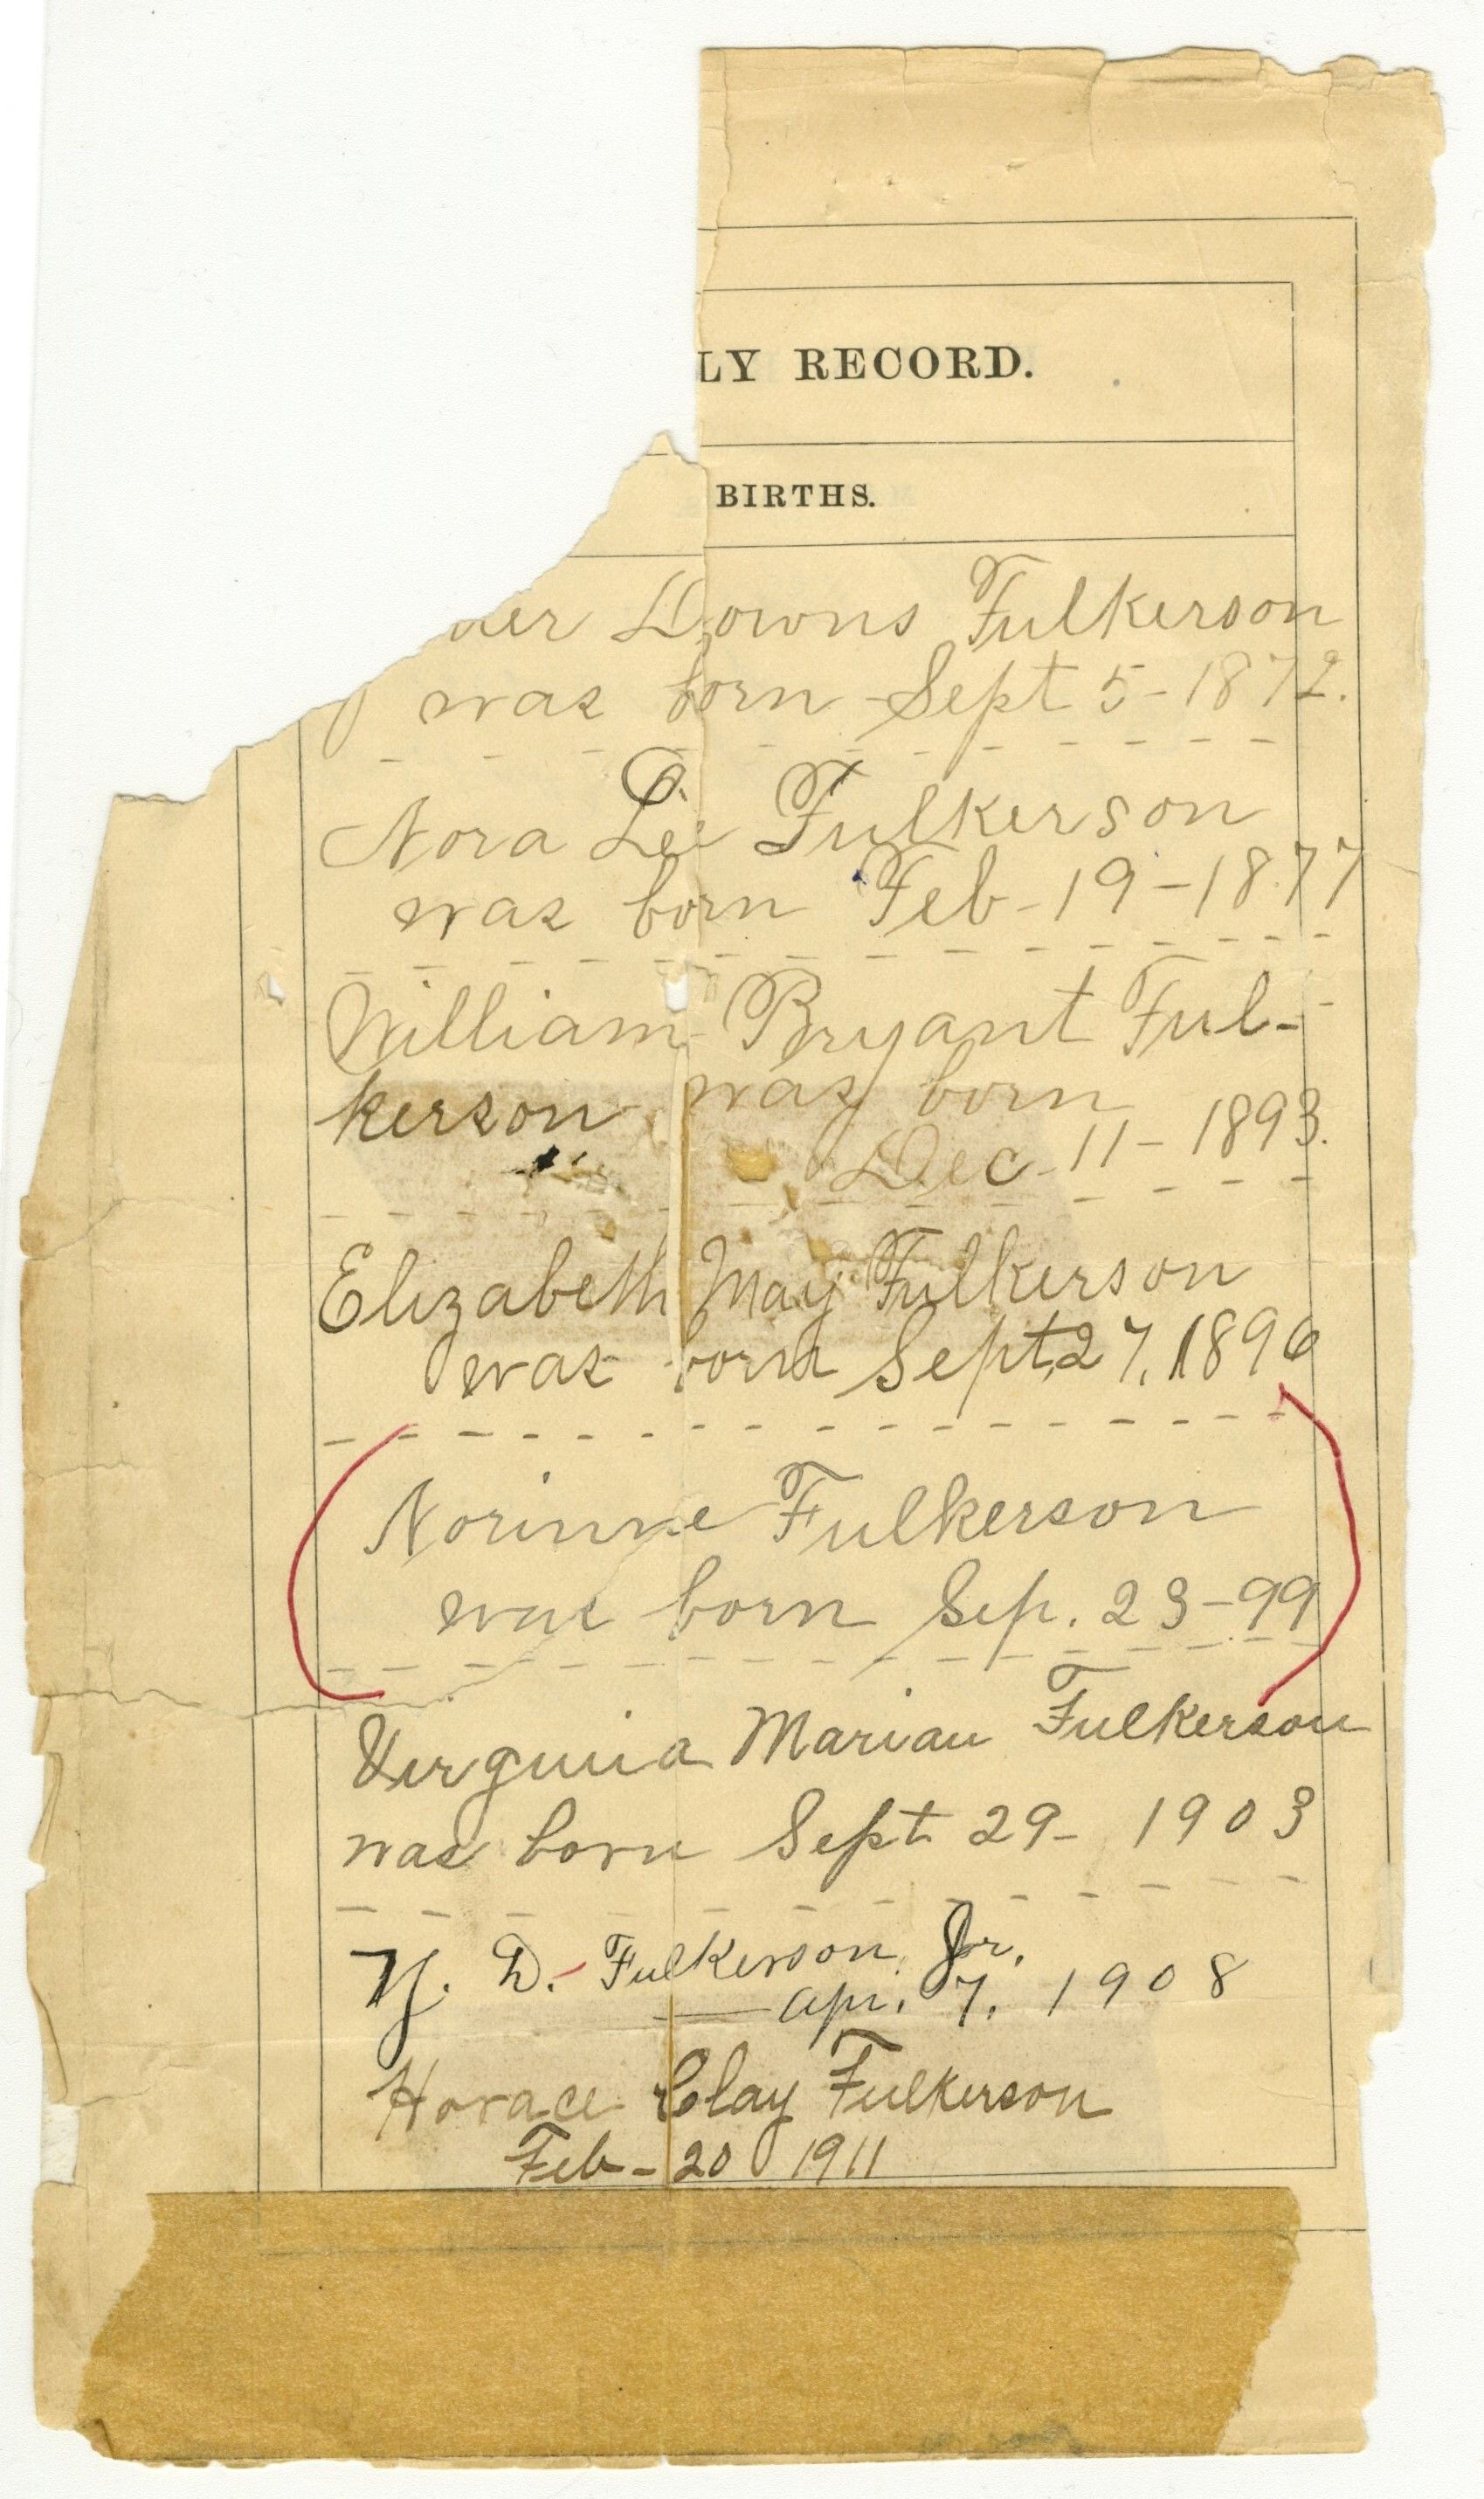 LY RECORD.
BIRTHS.
er Downs Fulkerson
was born Sept 5-1872.
O.
Nora Lee Fulkerson
was born Feb-19-1877
William Bryant Ful-
kerson was born
Dec-11-1893.
Elizabeth May Fulkerson
was born Sept. 27, 1896
Norinne Fulkerson
was born Sep. 23-99
Virginia Marian Fulkerson
was born Sept 29-1903
Y. D. Fulkerson, Jr.
— Apr. 7. 1908
Horace Clay Fulkerson
Feb-20 1911